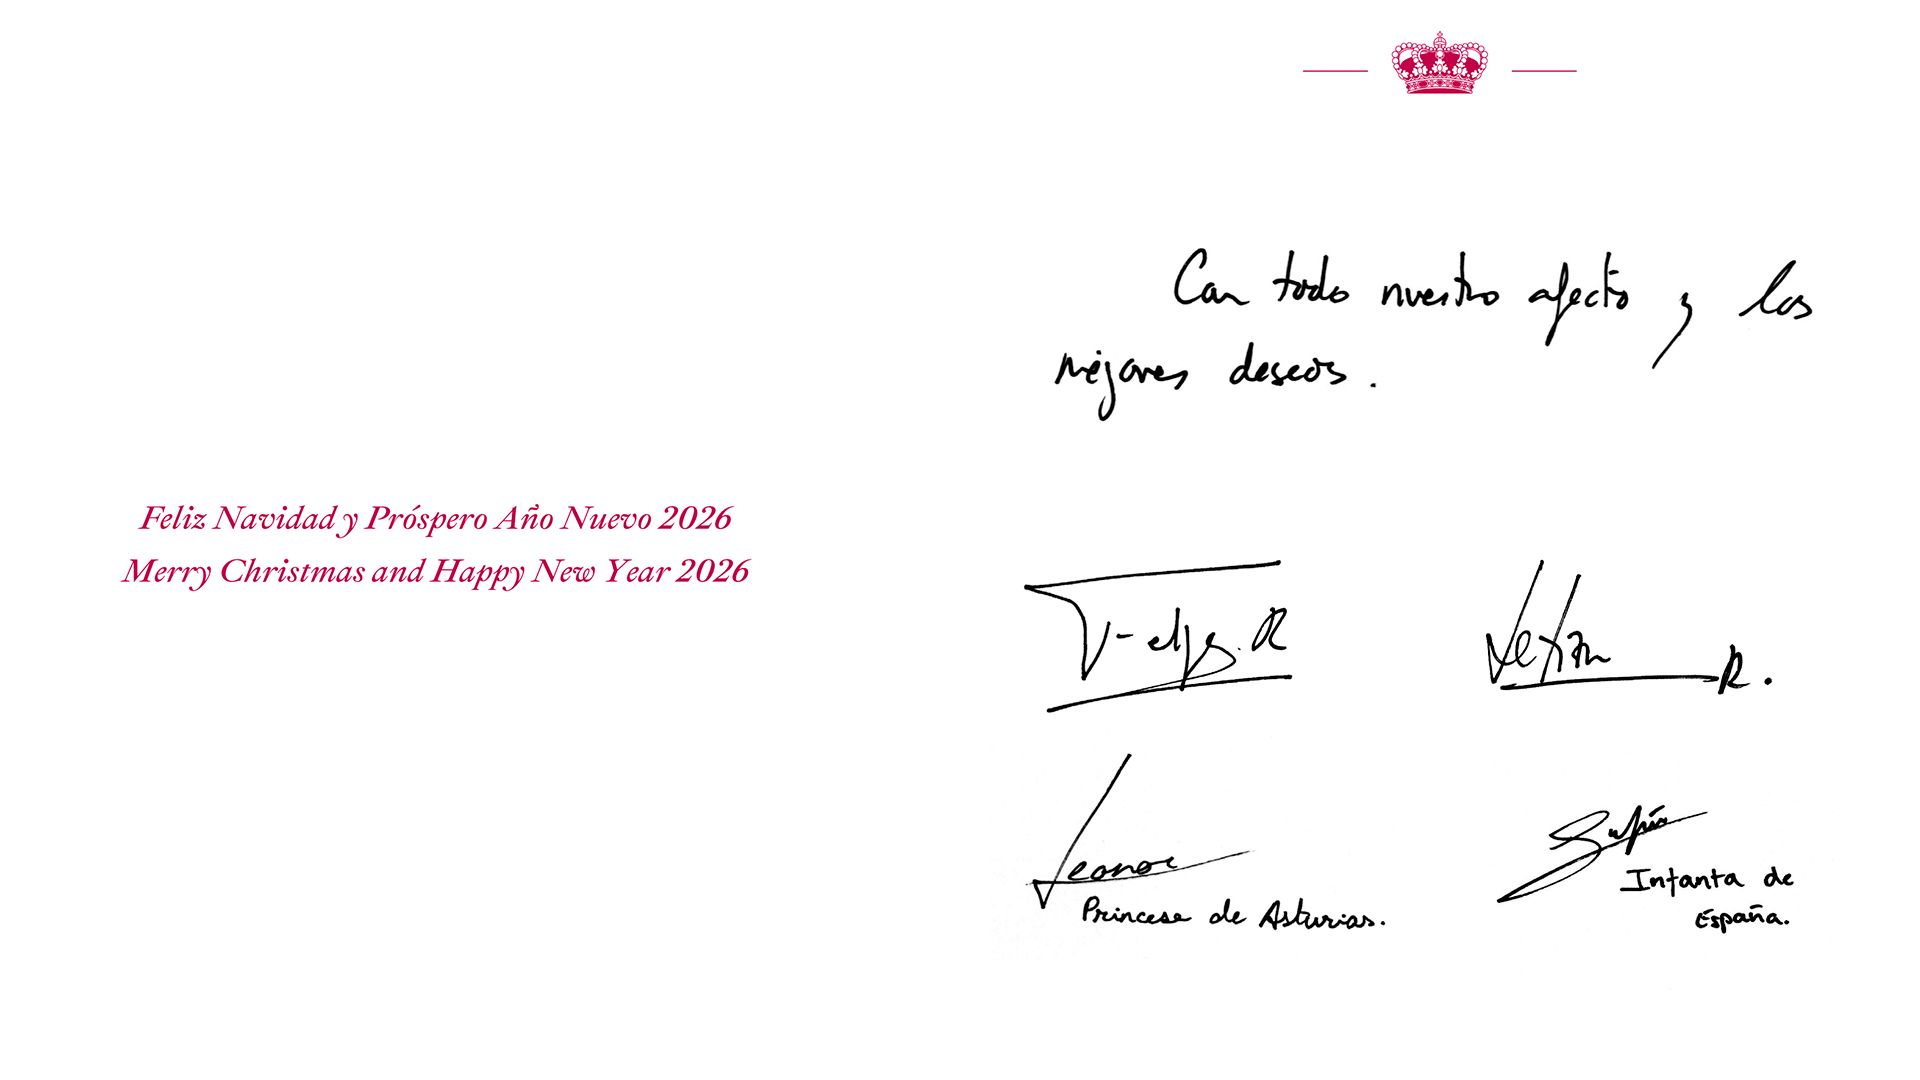 Feliz Navidad y Próspero Año Nuevo 2026
Merry Christmas and Happy New Year 2026
Con todo nuestro afecto y los
mejores deseos.
Felipe R
Letizia R.
Leonor
Princesa de Asturias.
Sofía
Infanta de
España.